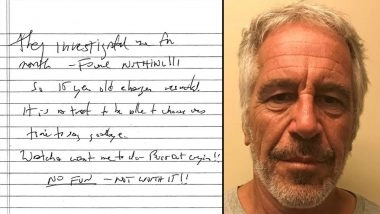 They investigated me for
month – Found NOTHING!!!
So 15 year old charges resulted.
It is a treat to be able to choose ones
time to say goodbye.
Watcha want me to do – Burst out crying!!
NO FUN – NOT WORTH IT!!